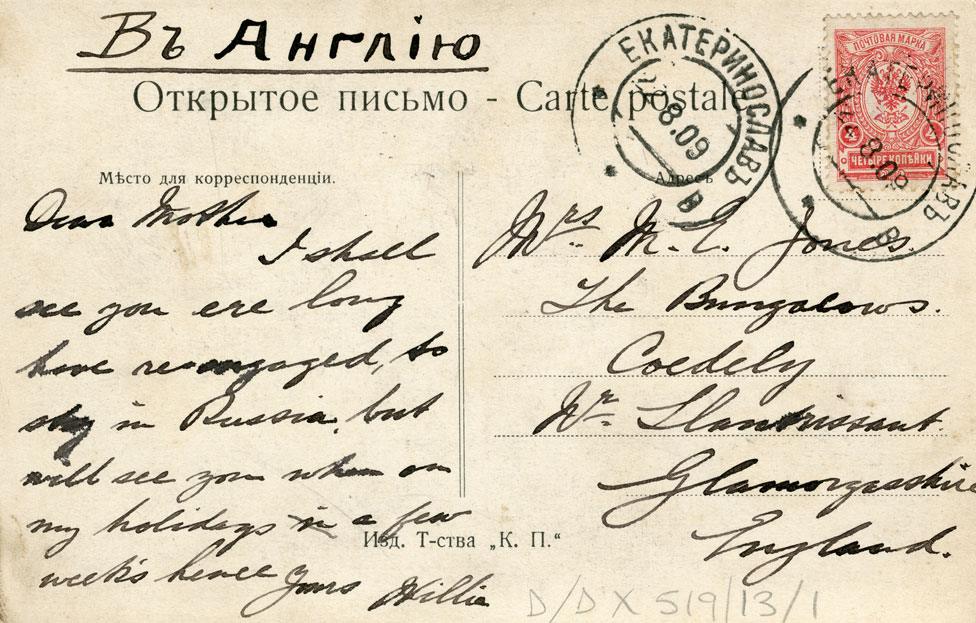 Въ Англію
Открытое письмо - Carte postale
ЕКАТЕРИНОСЛАВЪ
8.09
В
ПОЧТОВАЯ МАРКА
4 4
ЧЕТЫРЕ КОПѢЙКИ
ЕКАТЕРИНОСЛАВЪ
8.09
В
Мѣсто для корреспонденціи.
Адресъ
Dear Mother
I shall
see you ere long
have reengaged, to
stay in Russia, but
will see you when on
my holidays in a few
week's hence Yours Willie
Mrs M. E. Jones.
The Bungalows.
Coedely
Nr Llantrissant
Glamorganshire
England.
Изд. Т-ства „К. П.“
D/DX 519/13/1